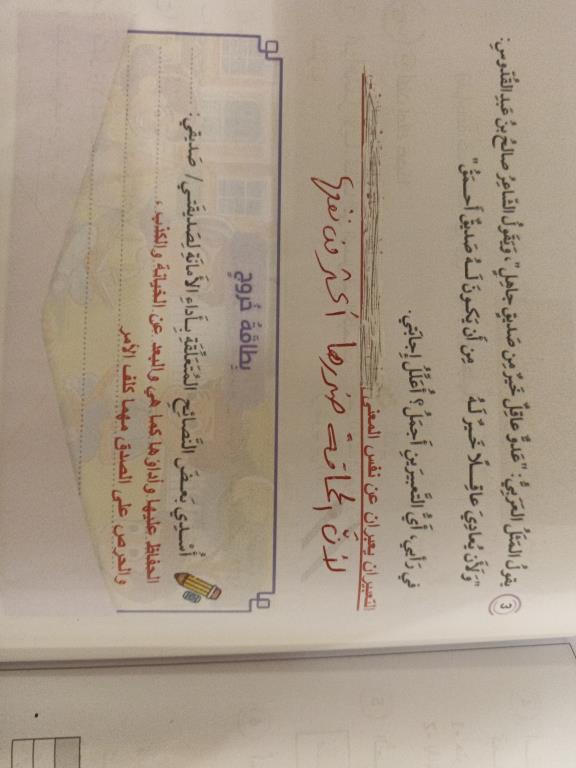 3 يقولُ المَثَلُ العَرَبِيُّ: "عَدُوٌّ عاقِلٌ خَيرٌ مِن صَديقٍ جاهِلٍ"، وَيَقولُ الشّاعِرُ صالِحُ بنُ عَبدِ القُدّوسِ:
"وَلَأَن يُعادِيَ عاقِـــلًا خَيـــرٌ لَـــهُ مِن أَن يَكـونَ لَـــهُ صَديـقٌ أَحـــمَقُ"
في رَأيي، أَيُّ التَّعبيرَينِ أَجمَلُ؟ أُعَلِّلُ إِجابَتي.
التعبيران يعبران عن نفس المعنى
لأنّ الحماقة ضررها أكثر من نفعها
بِطاقَةُ خُروجٍ
أُسْــدي بَعــضَ النَّصائِحِ المُتَعَلِّقَةِ بِــأَداءِ الأَمانَةِ لِصَديقَتــي/ صَديقي:
الحفاظ عليها وأداؤها كما هي والبعد عن الخيانة والكذب،
والحرص على الصدق مهما كلف الأمر